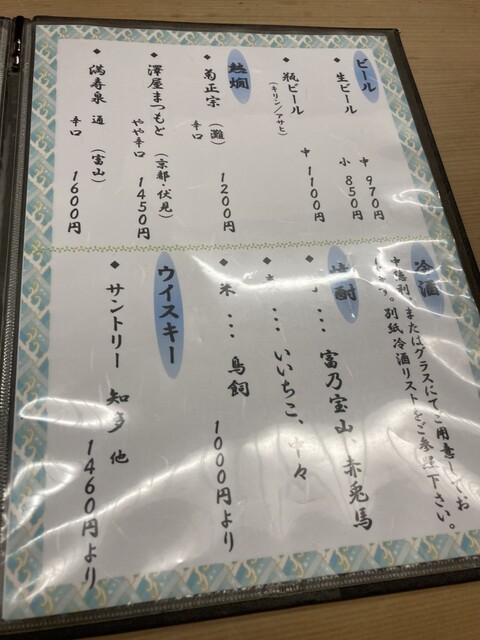 ビール
◆ 生ビール
中 970円
小 850円
◆ 瓶ビール
(キリン/アサヒ)
中 1100円
熱燗
◆ 菊正宗 (灘)
辛口 1200円
◆ 澤屋まつもと (京都・伏見)
やや辛口 1450円
◆ 満寿泉 通 (富山)
辛口 1600円
冷酒
中徳利、またはグラスにてご用意してお
ります。別紙冷酒リストをご参照下さい。
焼酎
◆ … 富乃宝山、赤兎馬
◆ … いいちこ、中々
◆ 米 … 鳥飼
1000円より
ウイスキー
◆ サントリー 知多 他
1460円より